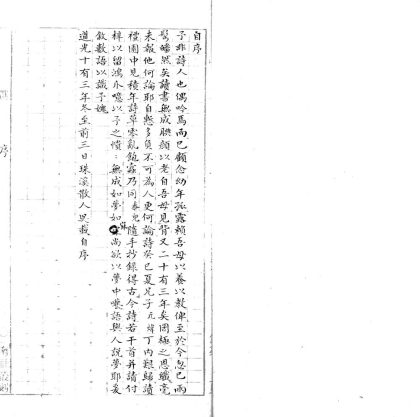 自序
予非詩人也偶吟焉而已顧念幼年孤露賴吾母以養以教俾至於今忽已兩
鬢皤然矣讀書無成腆顏以老自吾母見背又二十有三年矣罔極之恩纖毫
未報他何論耶自慙多負不可為人更何論詩癸巳夏兒子元緯丁內艱歸讀
禮園中見積年詩草零亂隨
乃同
隨手抄錄得古今詩若干首并請付
梓以留鴻爪噫以予之憒
無成如夢如
尚欲以夢中囈語與人說夢耶爰
敘數語以識予媿
道光十有三年冬至前三日珠溪散人吳載自序
序